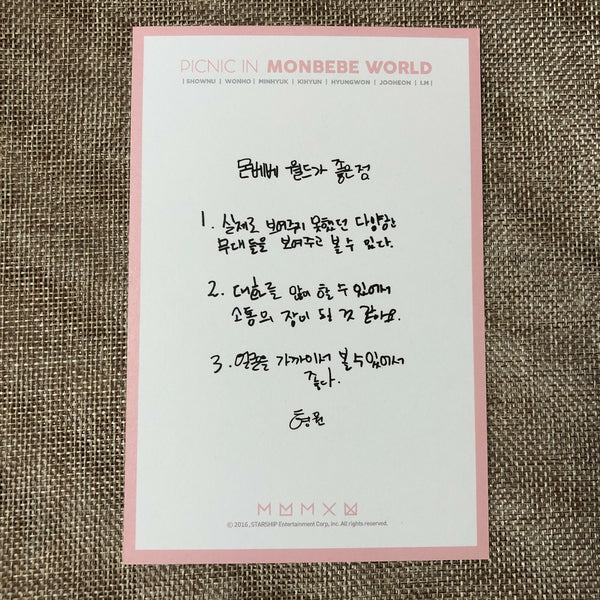 PICNIC IN MONBEBE WORLD
| SHOWNU | WONHO | MINHYUK | KIHYUN | HYUNGWON | JOOHEON | I.M |
몬베베 월드가 좋은점
1. 실제로 보여주지 못했던 다양한
무대들을 보여주고 볼 수 있다.
2. 대화를 많이 할 수 있어서
소통의 장이 될 것 같아요.
3. 얼굴을 가까이서 볼 수 있어서
좋다.
형원
© 2016, STARSHIP Entertainment Corp, inc. All rights reserved.